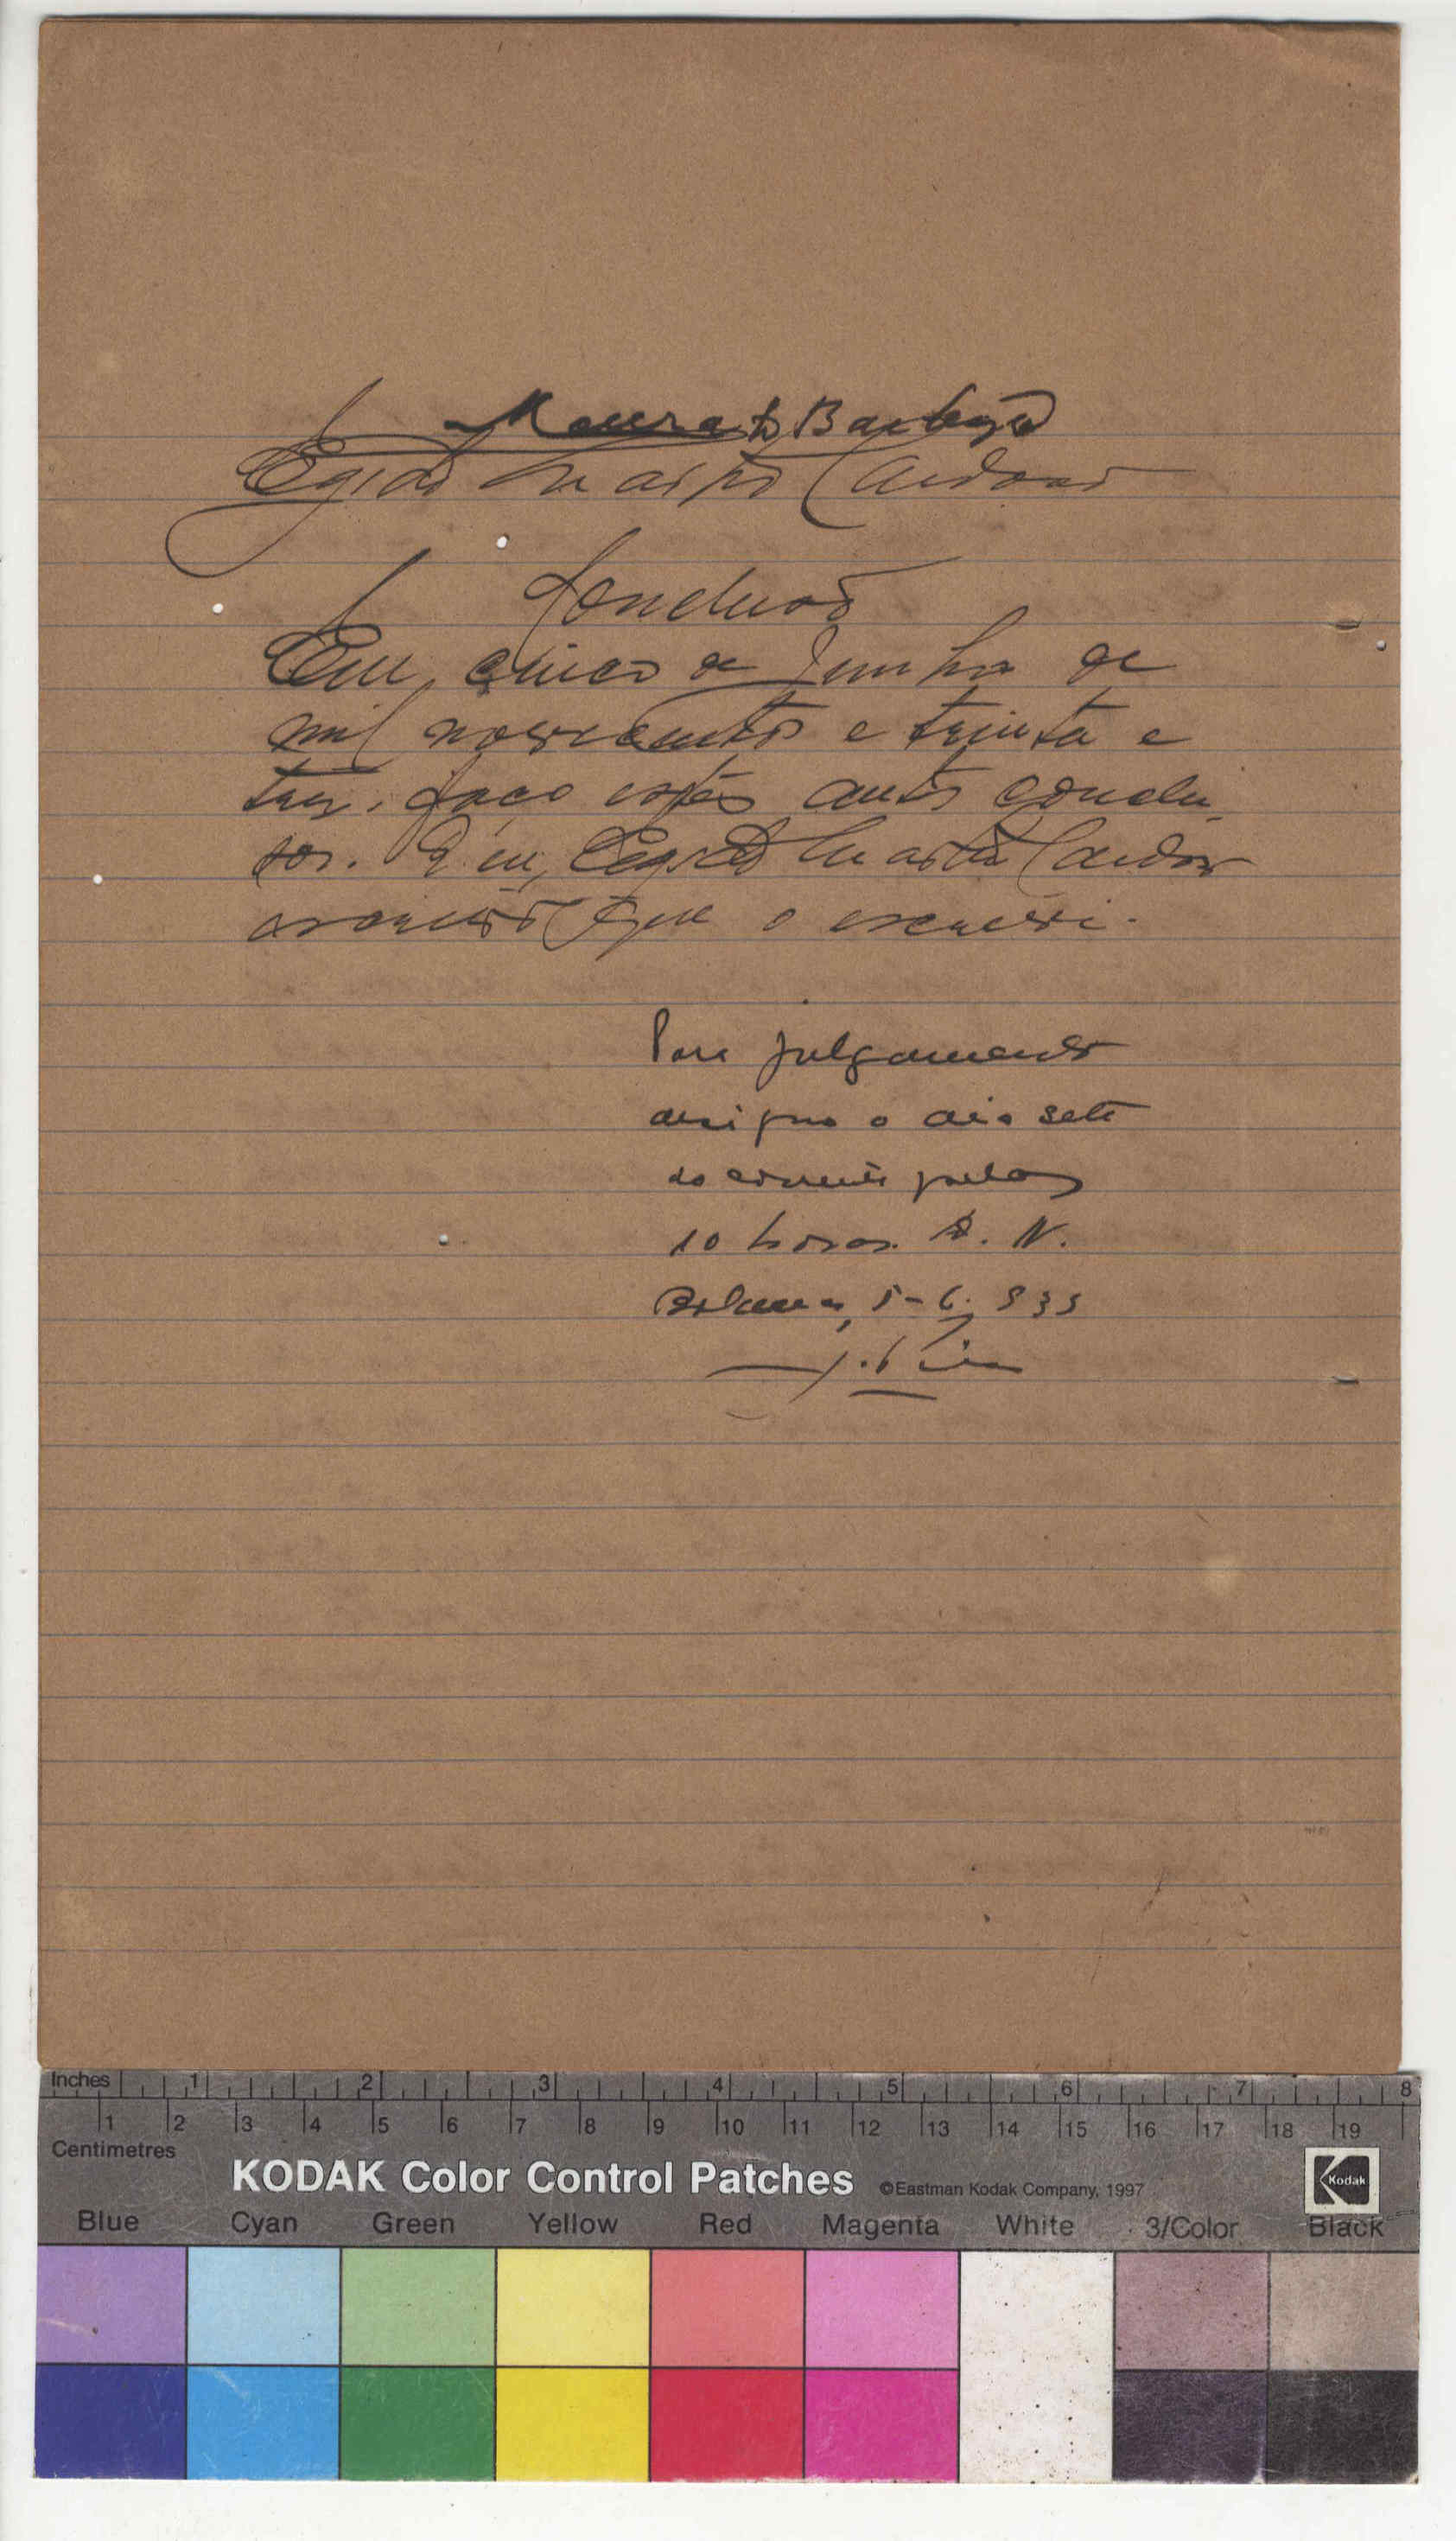 Moura Barbosa
Egidio Martins Cardoso
Conclusão
Em cinco de Junho de
mil novecentos e trinta e
tres, faço estes autos conclu-
sos. Eu, Egidio Martins Cardoso
que o escrevi.
Para julgamento
designo o dia sete
do corrente pelas
10 horas. N.
5-6-
Inches 1 2 3 4 5 6 7 8
1 2 3 4 5 6 7 8 9 10 11 12 13 14 15 16 17 18 19
Centimetres
KODAK Color Control Patches ©Eastman Kodak Company, 1997 Kodak
Blue Cyan Green Yellow Red Magenta White 3/Color Black